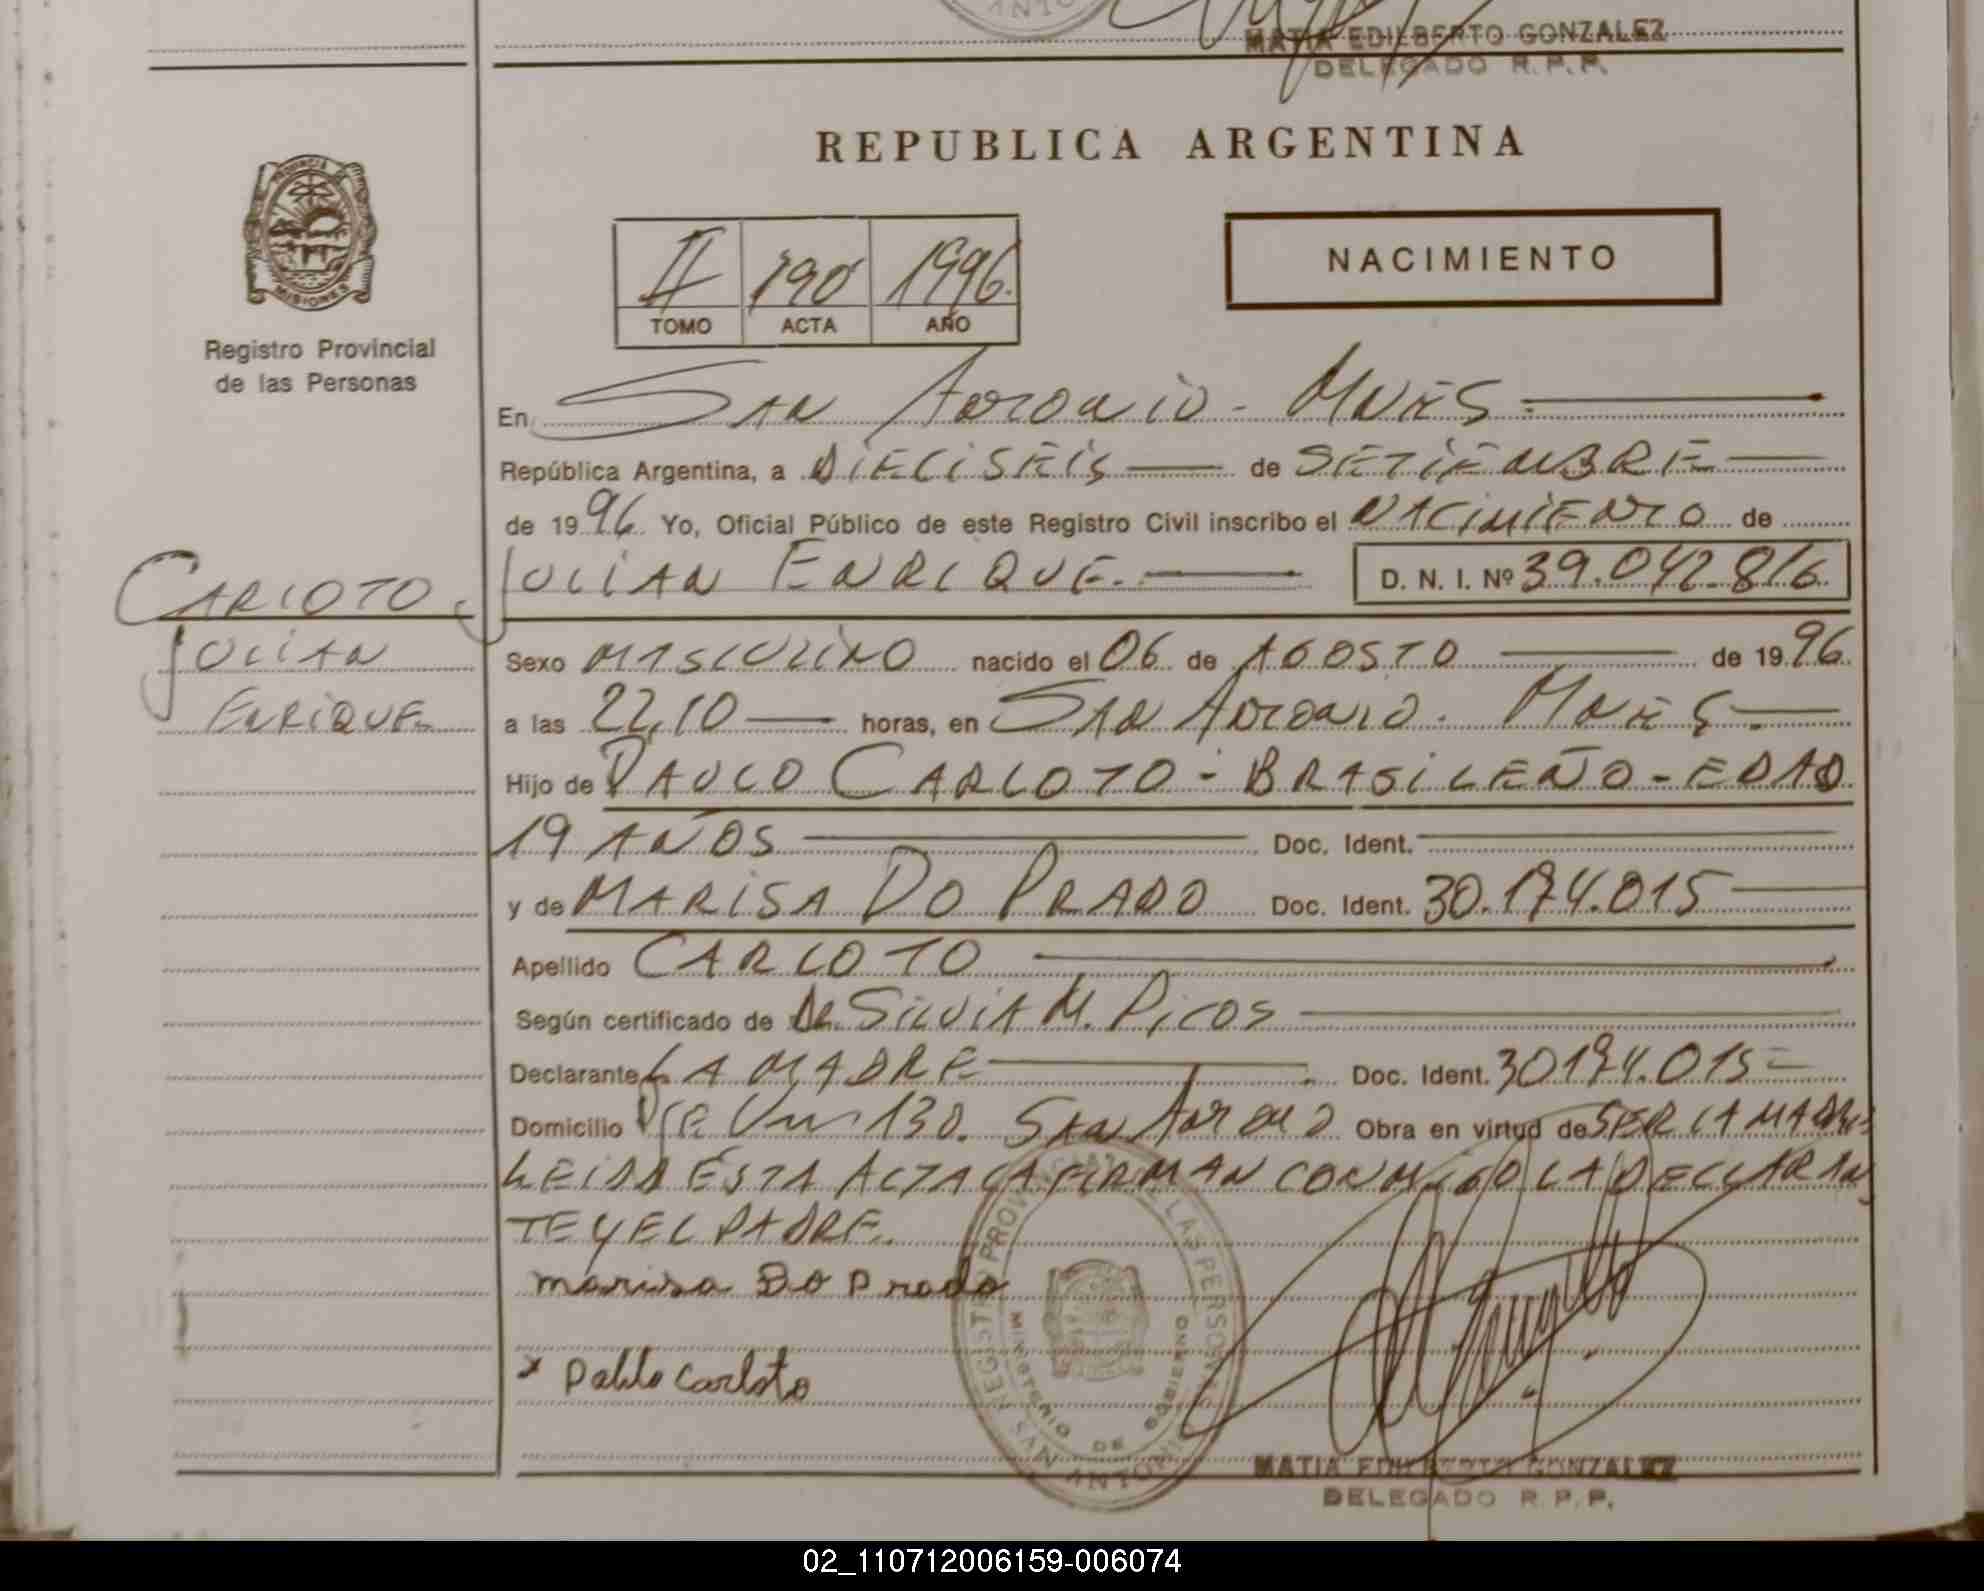 MATIA EDILBERTO GONZALEZ
DELEGADO R. P. P.
REPUBLICA ARGENTINA
II 190 1996.
TOMO ACTA AÑO
NACIMIENTO
PROVINCIA
MISIONES
Registro Provincial
de las Personas
En SAN ANTONIO - MNES
República Argentina, a DIECISEIS de SETIEMBRE
de 1996. Yo, Oficial Público de este Registro Civil inscribo el NACIMIENTO de
JULIAN ENRIQUE. D. N. I. Nº 39.042.816
CARLOTO
JULIAN
ENRIQUE
Sexo MASCULINO nacido el 06 de AGOSTO de 1996.
a las 22,10 horas, en SAN ANTONIO. MNES.
Hijo de PAULO CARLOTO - BRASILEÑO - EDAD
19 AÑOS Doc. Ident.
y de MARISA DO PRADO Doc. Ident. 30.174.015
Apellido CARLOTO
Según certificado de DR. SILVIA M. PICOS
Declarante LA MADRE Doc. Ident. 30174.015
Domicilio 130. SAN ANTONIO Obra en virtud de SER LA MADRE
LEIDA ESTA ACTA LA FIRMAN CONMIGO LA DECLARAN
TE Y EL PADRE.
marisa Do Prado
x Pablo Carloto
REGISTRO PROVINCIAL DE LAS PERSONAS
MINISTERIO DE GOBIERNO
SAN ANTONIO
MATIA EDILBERTO GONZALEZ
DELEGADO R. P. P.
02_110712006159-006074